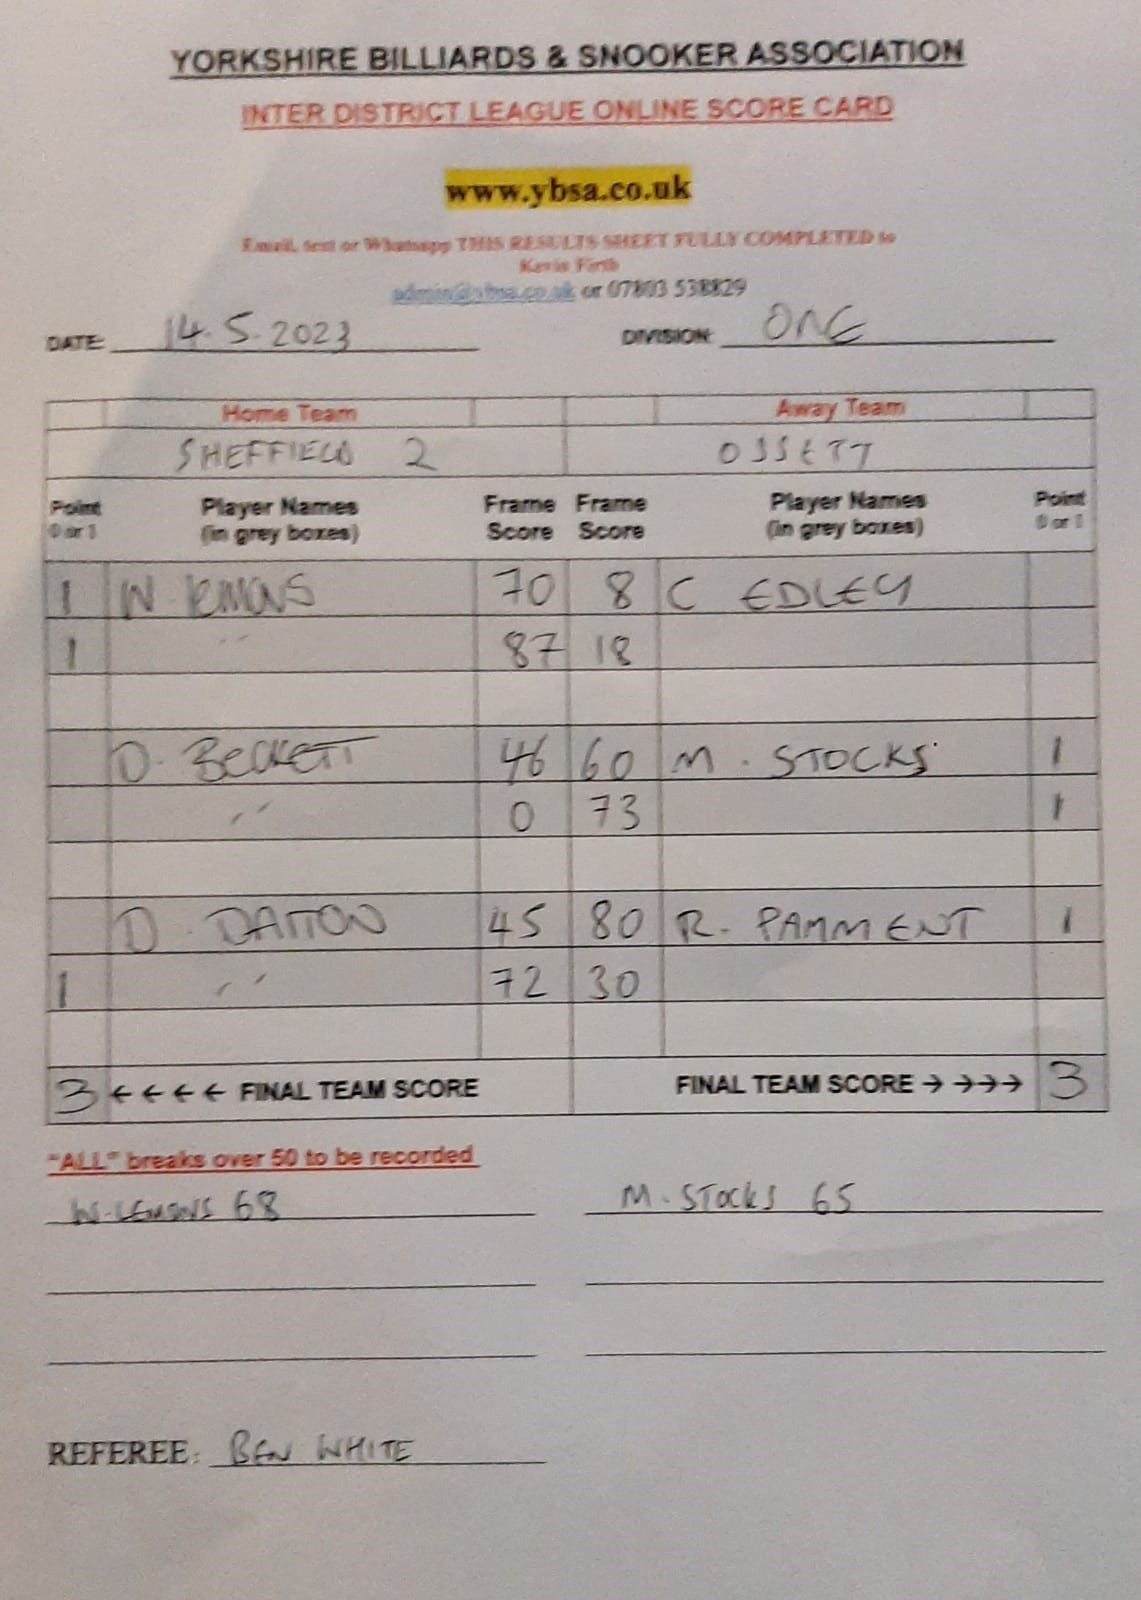 YORKSHIRE BILLIARDS & SNOOKER ASSOCIATION
INTER DISTRICT LEAGUE ONLINE SCORE CARD
www.ybsa.co.uk
Email, text or Whatsapp THIS RESULTS SHEET FULLY COMPLETED to
Kevin Firth
admin@ybsa.co.uk or 07803 538829
DATE: 14.5.2023 DIVISION: ONE
Home Team Away Team
SHEFFIELD 2 OSSETT
Point Player Names Frame Frame Player Names Point
0 or 1 (in grey boxes) Score Score (in grey boxes) 0 or 1
1 W. LEMONS 70 8 C EDLEY
1 " 87 18
D. BECKETT 46 60 M. STOCKS 1
" 0 73 1
D. DATTON 45 80 R. PAMMENT 1
1 " 72 30
3 ←←←← FINAL TEAM SCORE FINAL TEAM SCORE →→→→ 3
"ALL" breaks over 50 to be recorded
W. LEMONS 68 M. STOCKS 65
REFEREE: BEN WHITE